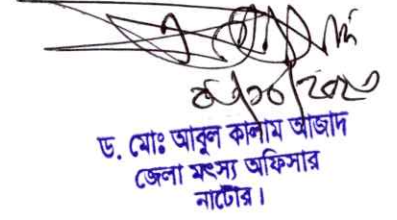 ড. মোঃ আবুল কালাম আজাদ
জেলা মৎস্য অফিসার
নাটোর।